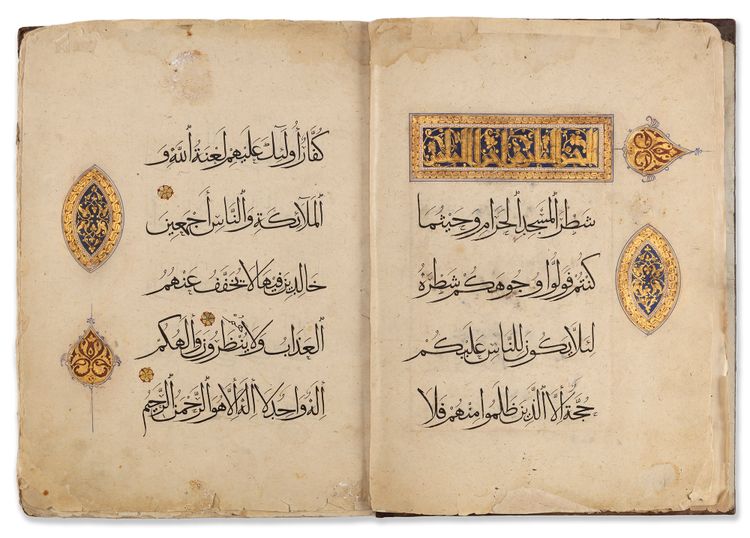 شَطْرَ الْمَسْجِدِ الْحَرَامِ وَحَيْثُمَا
كُنْتُمْ فَوَلُّوا وُجُوهَكُمْ شَطْرَهُ
لِئَلَّا يَكُونَ لِلنَّاسِ عَلَيْكُمْ
حُجَّةٌ إِلَّا الَّذِينَ ظَلَمُوا مِنْهُمْ فَلَا
كُفَّارٌ أُولَئِكَ عَلَيْهِمْ لَعْنَةُ اللَّهِ وَ
الْمَلَائِكَةِ وَالنَّاسِ أَجْمَعِينَ
خَالِدِينَ فِيهَا لَا يُخَفَّفُ عَنْهُمُ
الْعَذَابُ وَلَا هُمْ يُنْظَرُونَ وَإِلَهُكُمْ
إِلَهٌ وَاحِدٌ لَا إِلَهَ إِلَّا هُوَ الرَّحْمَنُ الرَّحِيمُ